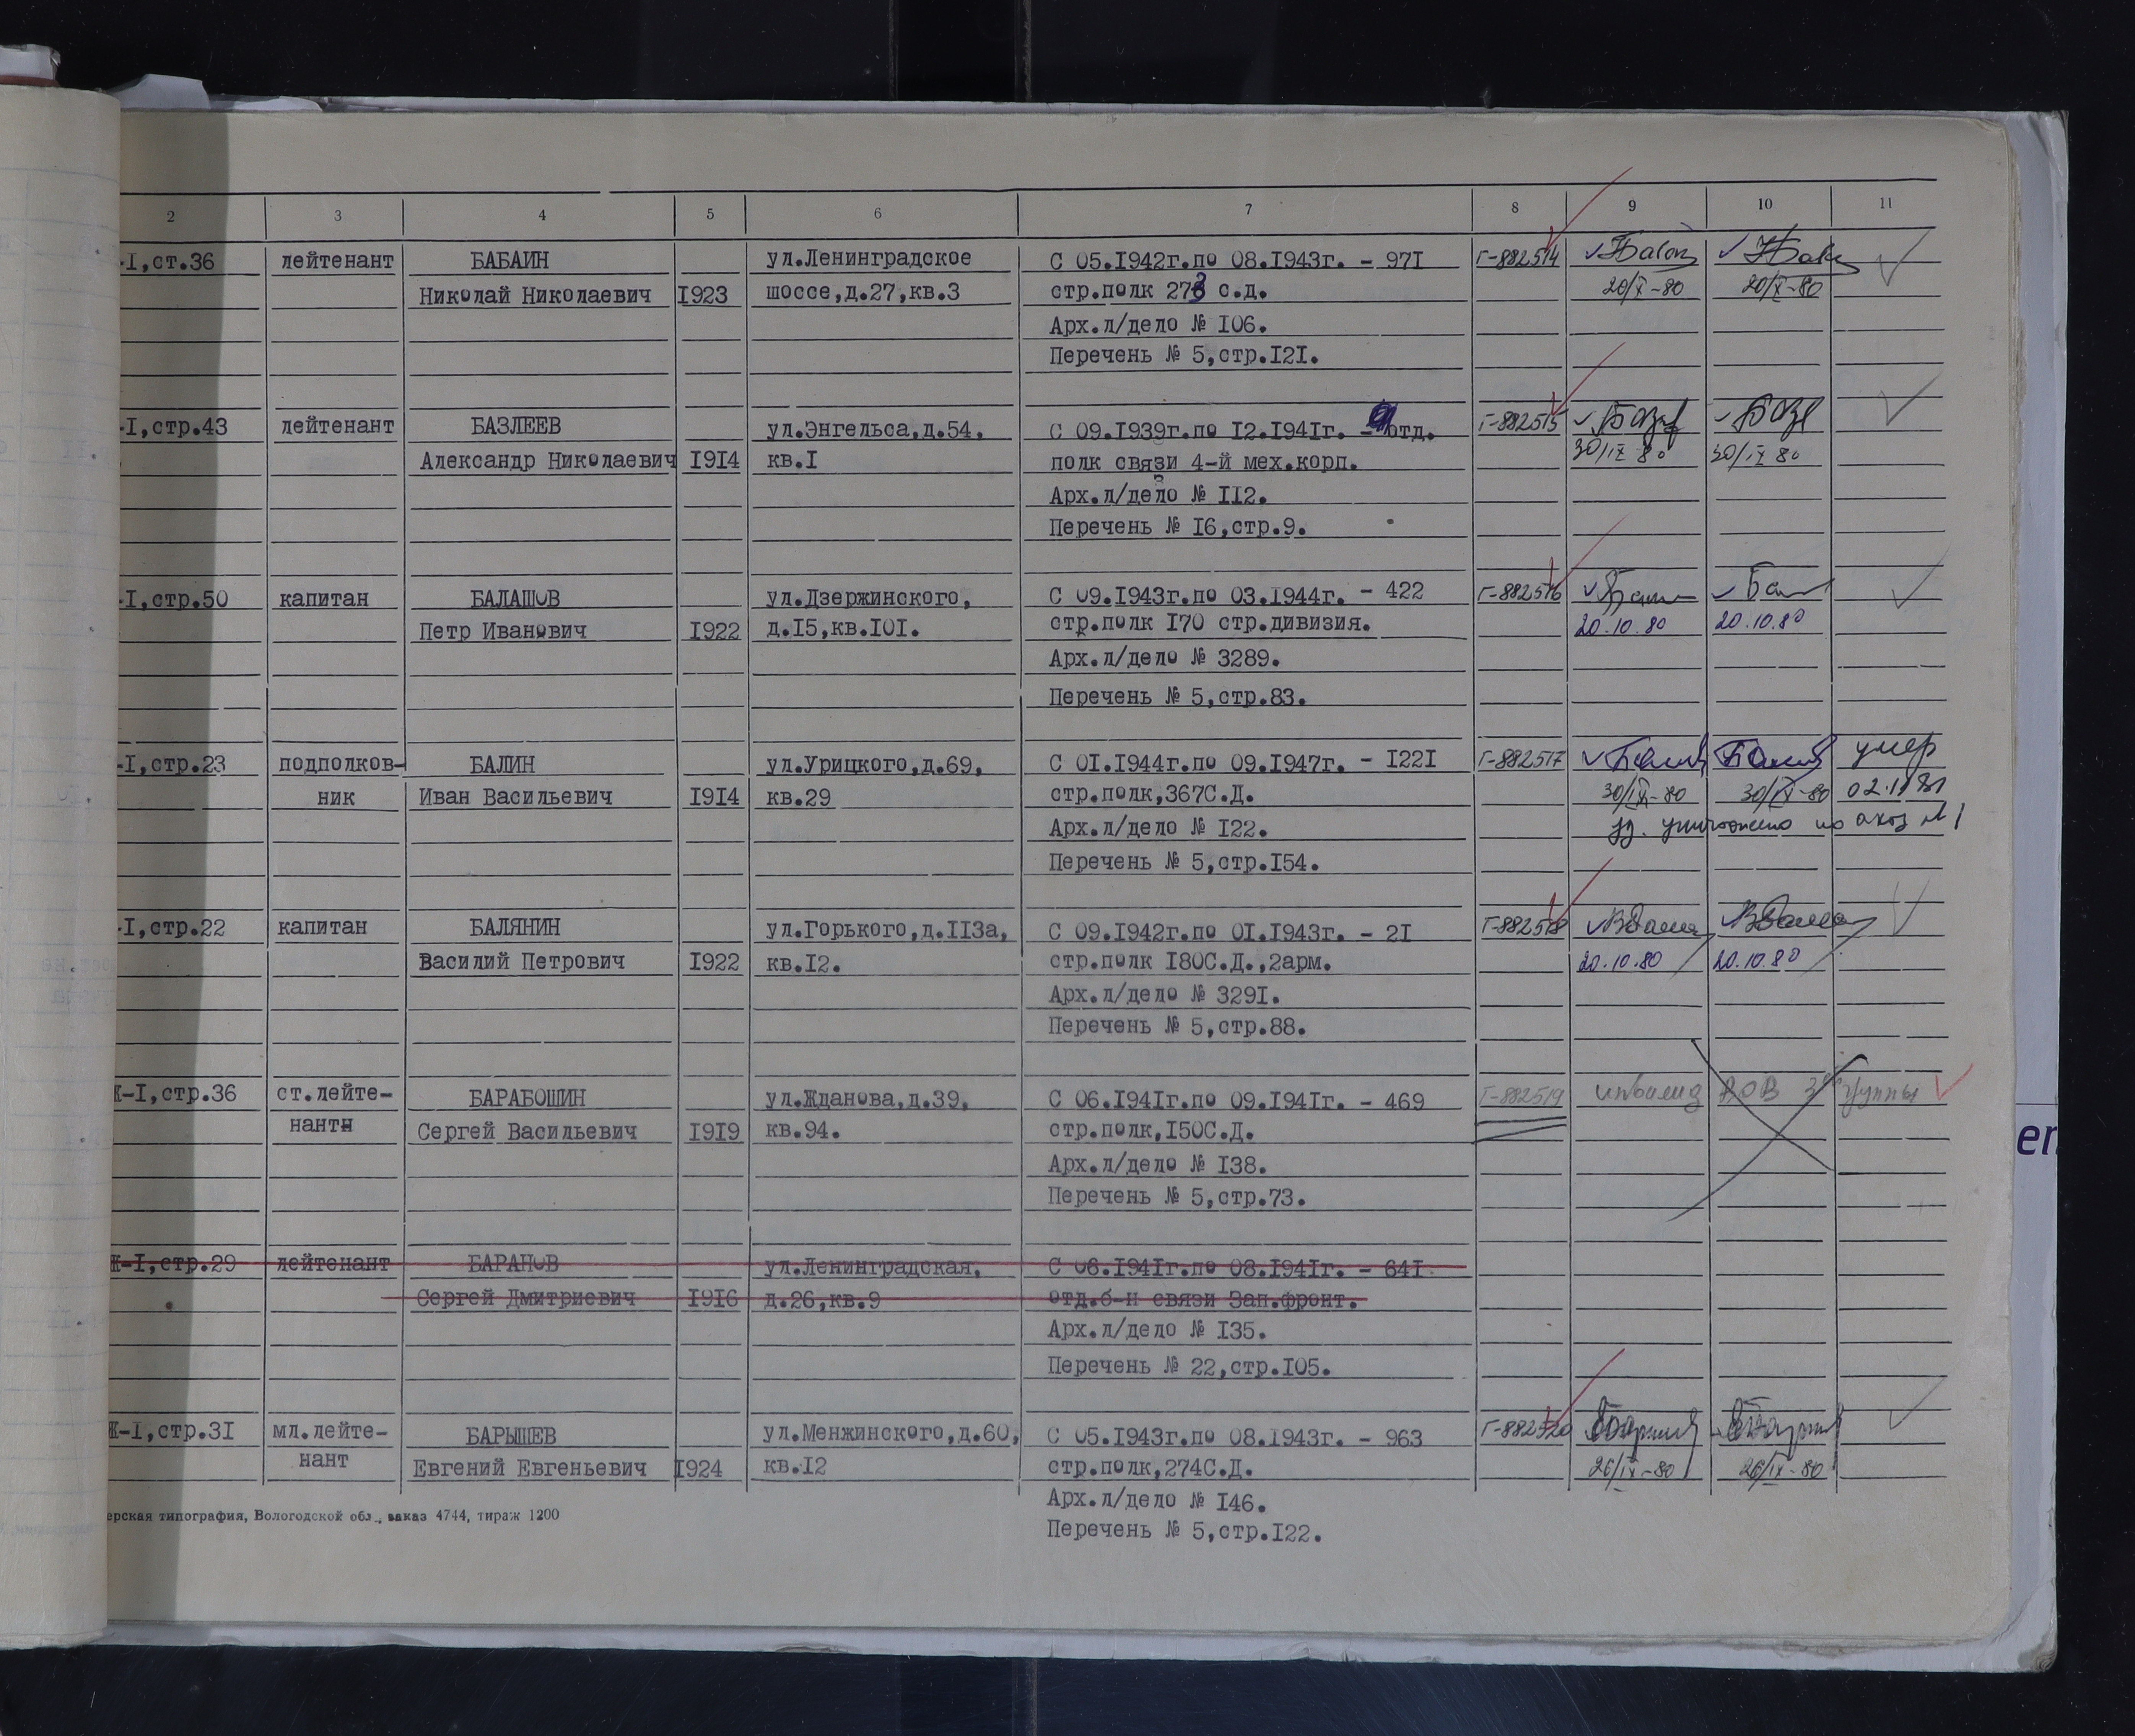 2 3 4 5 6 7 8 9 10 11
-I,ст.36 лейтенант БАБАИН ул.Ленинградское С 05.I942г.по 08.I943г. - 97I Г-882514
Николай Николаевич I923 шоссе,д.27,кв.3 стр.полк 273 с.д. 20/X-80 20/X-80
Арх.л/дело № I06.
Перечень № 5,стр.I2I.
-I,стр.43 лейтенант БАЗЛЕЕВ ул.Энгельса,д.54, С 09.I939г.по I2.I94Iг. - отд. Г-882515
Александр Николаевич I9I4 кв.I полк связи 4-й мех.корп. 30/IX 80 30/IX 80
Арх.л/дело № II2.
Перечень № I6,стр.9.
-I,стр.50 капитан БАЛАШОВ ул.Дзержинского, С 09.I943г.по 03.I944г. - 422 Г-882516
Петр Иванович I922 д.I5,кв.I0I. стр.полк I70 стр.дивизия. 20.10.80 20.10.80
Арх.л/дело № 3289.
Перечень № 5,стр.83.
-I,стр.23 подполков- БАЛИН ул.Урицкого,д.69, С 0I.I944г.по 09.I947г. - I22I Г-882517 умер
ник Иван Васильевич I9I4 кв.29 стр.полк,367С.Д. 30/IX-80 30/IX-80
Арх.л/дело № I22. уд. уничтожено по
Перечень № 5,стр.I54.
-I,стр.22 капитан БАЛЯНИН ул.Горького,д.II3а, С 09.I942г.по 0I.I943г. - 2I Г-882518
Василий Петрович I922 кв.I2. стр.полк I80С.Д.,2арм. 20.10.80 20.10.80
Арх.л/дело № 329I.
Перечень № 5,стр.88.
Ж-I,стр.36 ст.лейте- БАРАБОШИН ул.Жданова,д.39, С 06.I94Iг.по 09.I94Iг. - 469 Г-882519 инвалид ВОВ 3й группы
нант Сергей Васильевич I9I9 кв.94. стр.полк,I50С.Д.
Арх.л/дело № I38.
Перечень № 5,стр.73.
Ж-I,стр.29 лейтенант БАРАНОВ ул.Ленинградская, С 06.I94Iг.по 08.I94Iг. - 64I
Сергей Дмитриевич I9I6 д.26,кв.9 отд.б-н связи Зап.фронт.
Арх.л/дело № I35.
Перечень № 22,стр.I05.
Ж-I,стр.3I мл.лейте- БАРЫШЕВ ул.Менжинского,д.60, С 05.I943г.по 08.I943г. - 963 Г-882520
нант Евгений Евгеньевич I924 кв.I2 стр.полк,274С.Д. 26/IX-80 26/IX-80
Арх.л/дело № I46.
Перечень № 5,стр.I22.
ерская типография, Вологодской обл., заказ 4744, тираж 1200